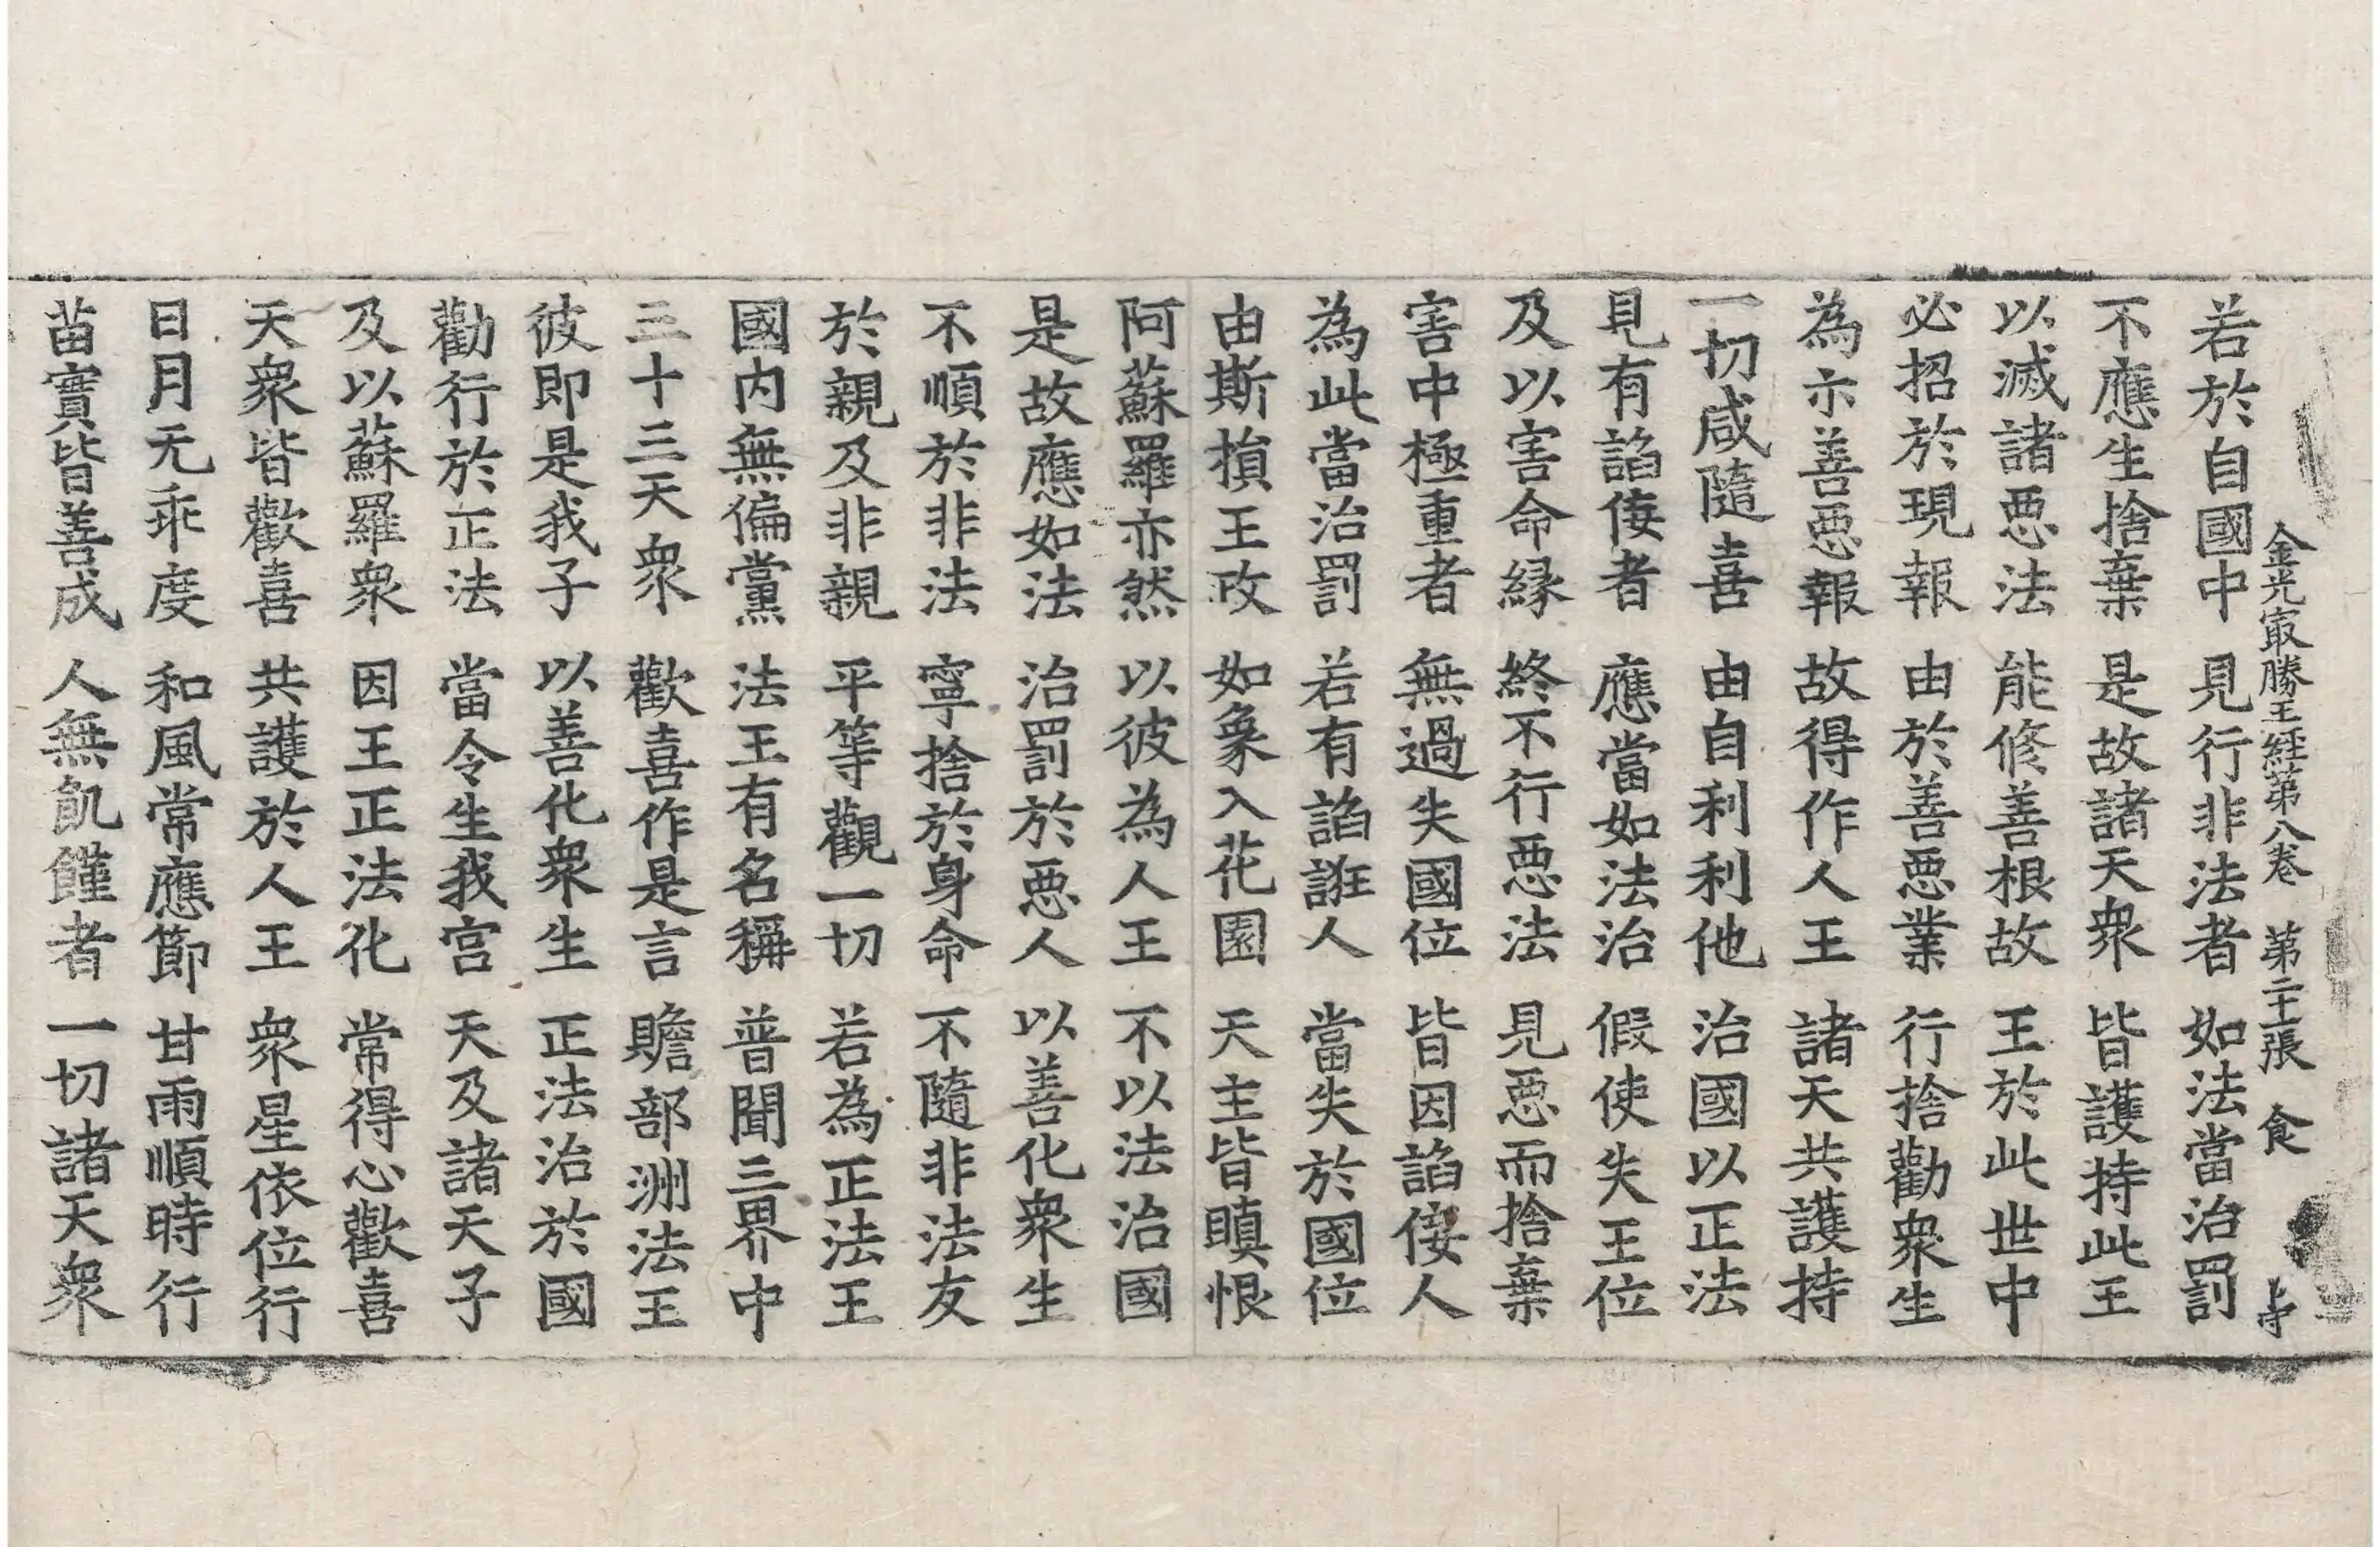 金光㝡勝王経苐八卷 苐二十張 食
若於自國中 見行非法者 如法當治罰
不應生捨棄 是故諸天衆 皆護持此王
以滅諸悪法 能修善根故 王於此世中
必招於現報 由於善悪業 行捨勸衆生
為示善悪報 故得作人王 諸天共護持
一切咸隨喜 由自利利他 治國以正法
見有諂侫者 應當如法治 假使失王位
及以害命縁 終不行悪法 見悪而捨棄
害中極重者 無過失國位 皆因諂侫人
為此當治罰 若有諂誑人 當失於國位
由斯損王政 如象入花園 天主皆瞋恨
阿蘇羅亦然 以彼為人王 不以法治國
是故應如法 治罰於悪人 以善化衆生
不順於非法 寧捨於身命 不隨非法友
於親及非親 平等觀一切 若為正法王
國内無偏黨 法王有名稱 普聞三界中
三十三天衆 歡喜作是言 贍部洲法王
彼即是我子 以善化衆生 正法治於國
勸行於正法 當令生我宫 天及諸天子
及以蘇羅衆 因王正法化 常得心歡喜
天衆皆歡喜 共護於人王 衆星依位行
日月无乖度 和風常應節 甘雨順時行
苗實皆善成 人無飢饉者 一切諸天衆